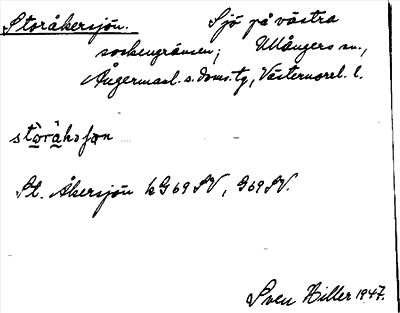 Storåkersjön. Sjö på västra
sockengränsen; Ullångers sn.,
Ångermanl. s. doms. tg, Västernorrl. l.
St. Åkersjön kG69SV, G69SV.
Sven Hiller 1947.